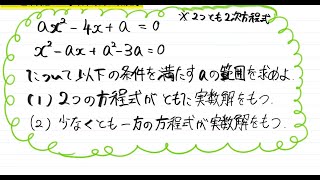 ※2つとも2次方程式
ax² - 4x + a = 0
x² - ax + a² - 3a = 0
について以下の条件を満たすaの範囲を求めよ
(1) 2つの方程式がともに実数解をもつ.
(2) 少なくとも一方の方程式が実数解をもつ.